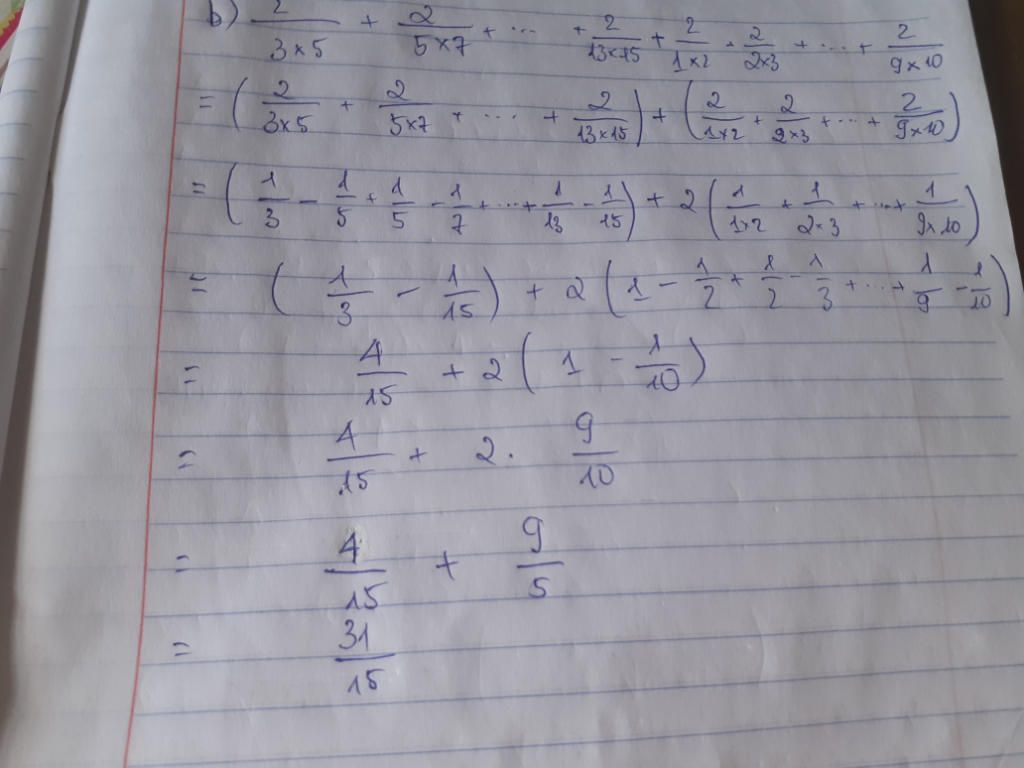 b) 2/(3×5) + 2/(5×7) + ... + 2/(13×15) + 2/(1×2) + 2/(2×3) + ... + 2/(9×10)
= (2/(3×5) + 2/(5×7) + ... + 2/(13×15)) + (2/(1×2) + 2/(2×3) + ... + 2/(9×10))
= (1/3 - 1/5 + 1/5 - 1/7 + ... + 1/13 - 1/15) + 2(1/(1×2) + 1/(2×3) + ... + 1/(9×10))
= (1/3 - 1/15) + 2(1 - 1/2 + 1/2 - 1/3 + ... + 1/9 - 1/10)
= 4/15 + 2(1 - 1/10)
= 4/15 + 2. 9/10
= 4/15 + 9/5
= 31/15